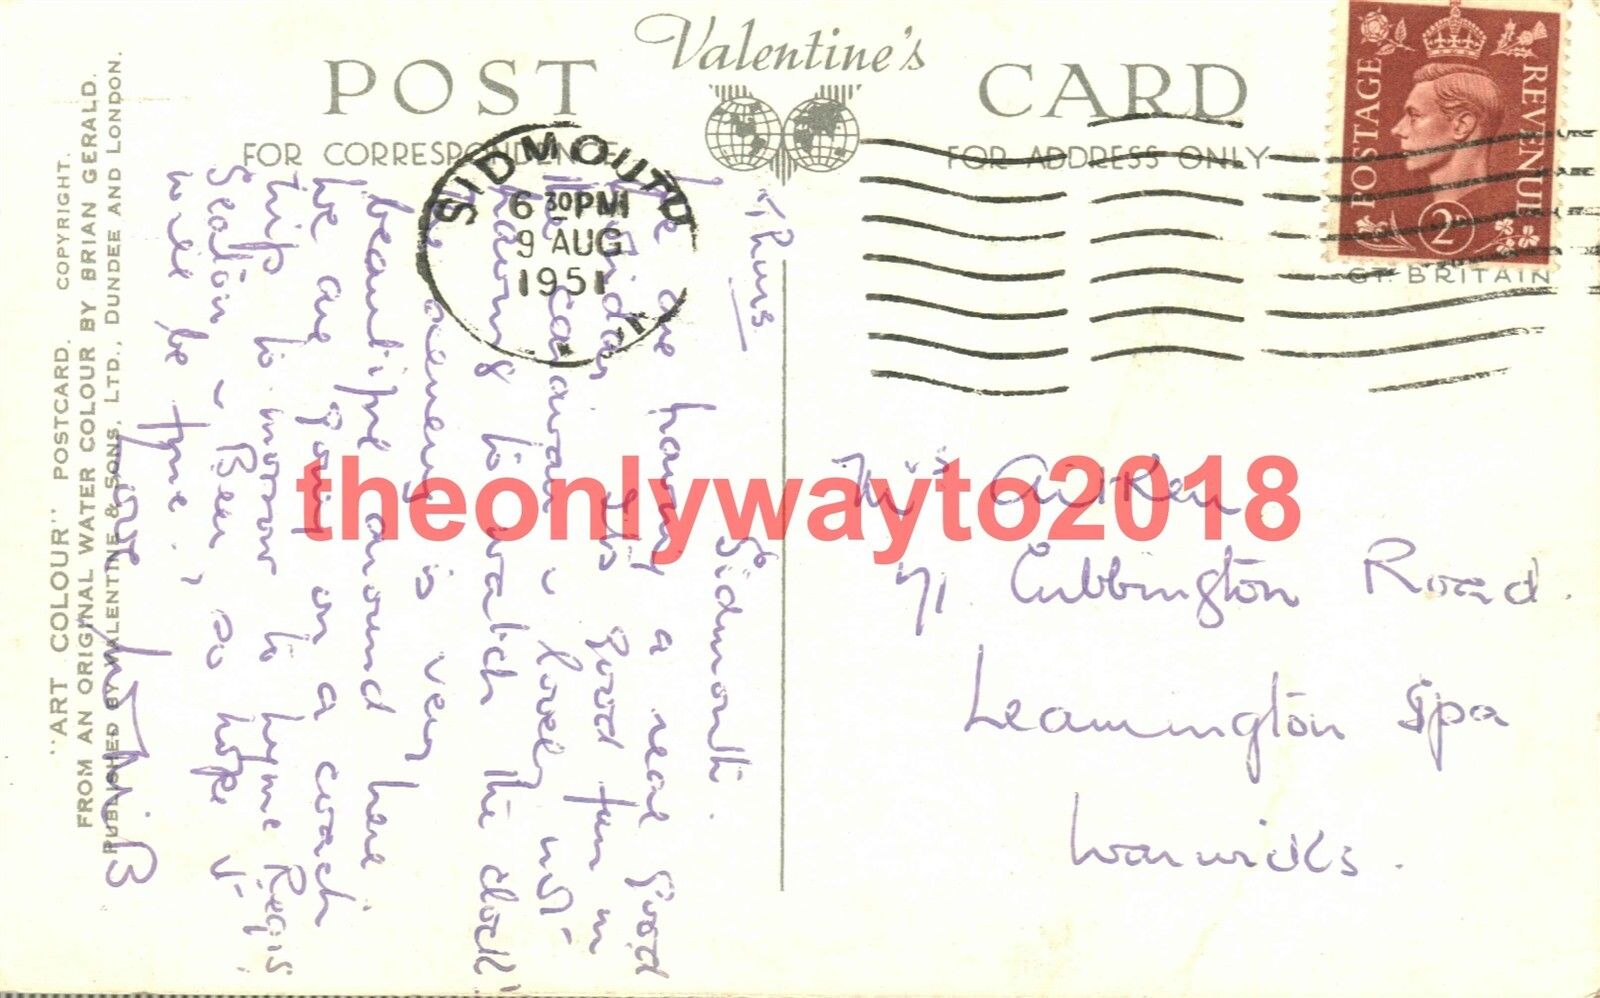 Valentine's
POST CARD
FOR CORRESPONDENCE
FOR ADDRESS ONLY
SIDMOUTH
6 30PM
9 AUG
1951
POSTAGE REVENUE
2D
GT. BRITAIN
"ART COLOUR" POSTCARD. COPYRIGHT.
FROM AN ORIGINAL WATER COLOUR BY BRIAN GERALD.
PUBLISHED BY VALENTINE & SONS, LTD., DUNDEE AND LONDON.
Thurs
Sidmouth.
We are having a real good
holiday its good fun in
the caravan & lovely not
having to watch the clock!
The scenery is very
beautiful around here
we are going on a coach
trip to-morrow to Lyme Regis
Seaton & Beer, so hope it
will be fine.
Love
theonlywayto2018
Miss Aitken
71 Cubbington Road.
Leamington Spa
Warwicks.